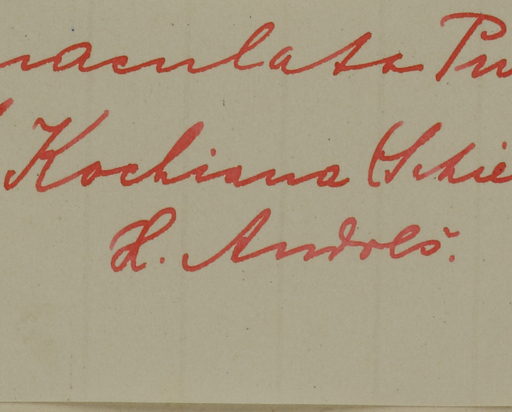 maculata Pu
Kochiana (Schie
H. Andres.